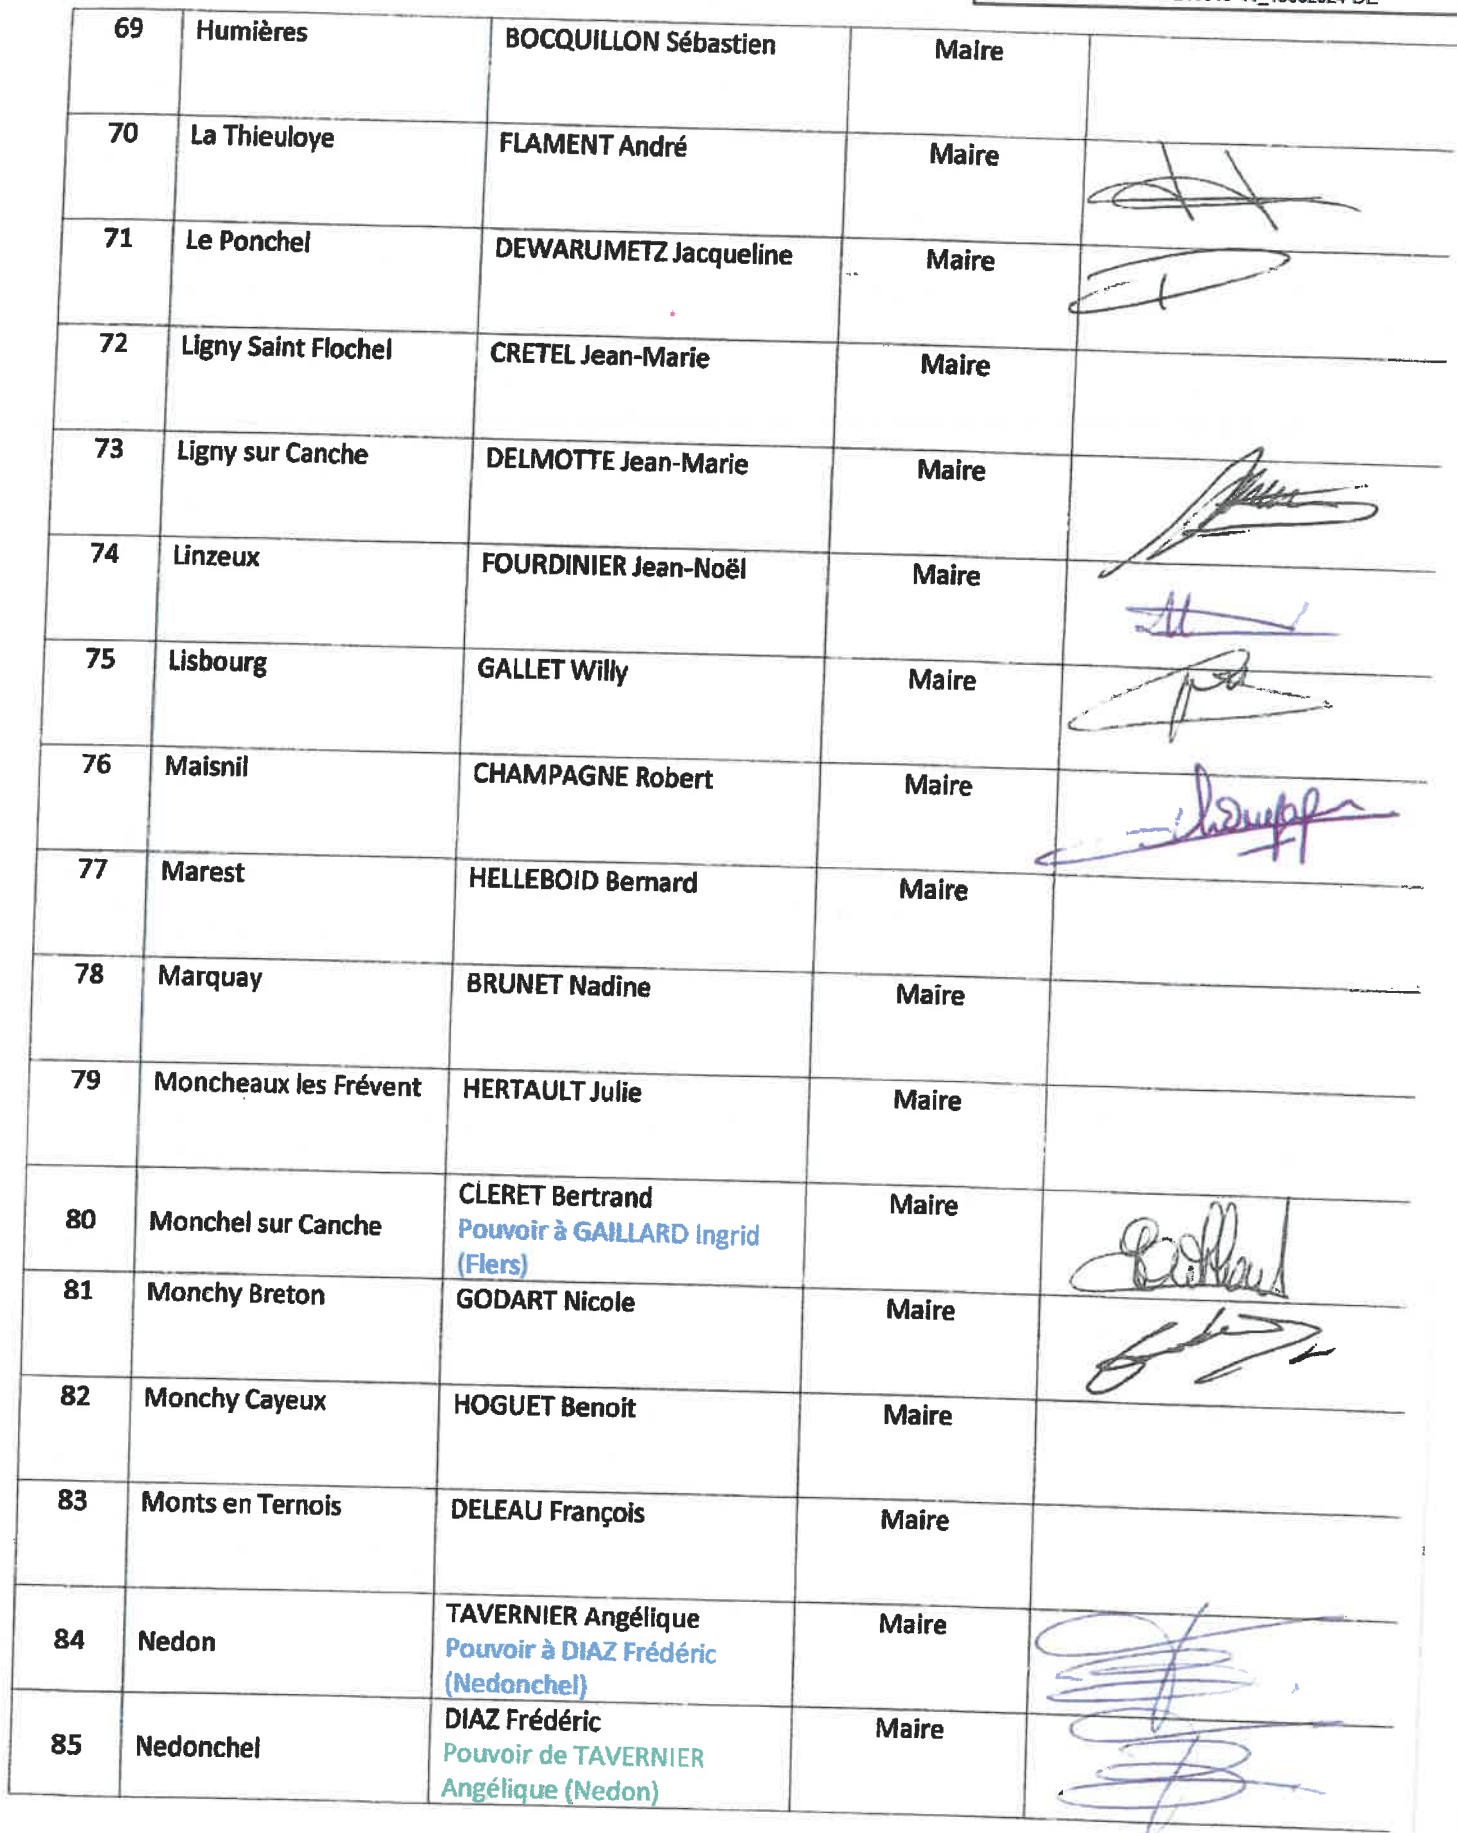 69 Humières BOCQUILLON Sébastien Maire
70 La Thieuloye FLAMENT André Maire
71 Le Ponchel DEWARUMETZ Jacqueline Maire
72 Ligny Saint Flochel CRETEL Jean-Marie Maire
73 Ligny sur Canche DELMOTTE Jean-Marie Maire
74 Linzeux FOURDINIER Jean-Noël Maire
75 Lisbourg GALLET Willy Maire
76 Maisnil CHAMPAGNE Robert Maire
77 Marest HELLEBOID Bernard Maire
78 Marquay BRUNET Nadine Maire
79 Moncheaux les Frévent HERTAULT Julie Maire
80 Monchel sur Canche CLERET Bertrand Maire
Pouvoir à GAILLARD Ingrid
(Flers)
81 Monchy Breton GODART Nicole Maire
82 Monchy Cayeux HOGUET Benoit Maire
83 Monts en Ternois DELEAU François Maire
84 Nedon TAVERNIER Angélique Maire
Pouvoir à DIAZ Frédéric
(Nedonchel)
85 Nedonchel DIAZ Frédéric Maire
Pouvoir de TAVERNIER
Angélique (Nedon)